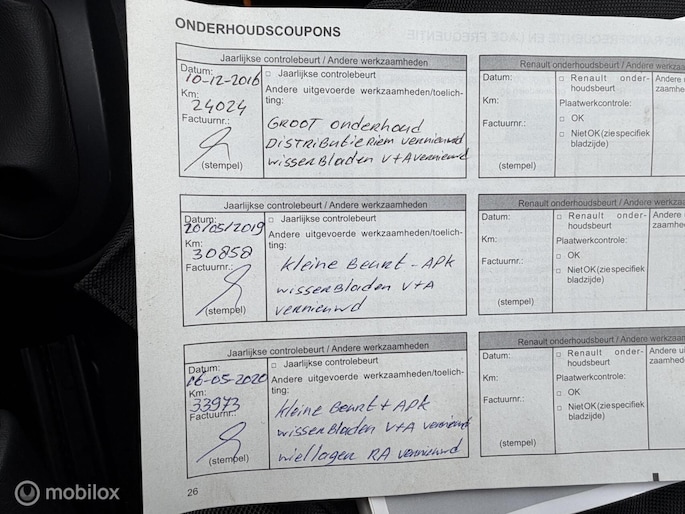 ONDERHOUDSCOUPONS
Jaarlijkse controlebeurt / Andere werkzaamheden
Datum:
10-12-2016
Km:
24024
Factuurnr.:
(stempel)
□ Jaarlijkse controlebeurt
Andere uitgevoerde werkzaamheden/toelich-
ting:
GROOT onderhoud
DISTRIBUTIERiem vernieuwd
wisserBladen V+A vernieuwd
Renault onderhoudsbeurt / Andere werkzaa
Datum:
Km:
Factuurnr.:
(stempel)
□ Renault onder-
houdsbeurt
Plaatwerkcontrole:
□ OK
□ Niet OK (zie specifiek
bladzijde)
Andere
zaamhe
Jaarlijkse controlebeurt / Andere werkzaamheden
Datum:
20/05/2019
Km:
30858
Factuurnr.:
(stempel)
□ Jaarlijkse controlebeurt
Andere uitgevoerde werkzaamheden/toelich-
ting:
kleine Beurt - APK
wisserBladen V+A
vernieuwd
Renault onderhoudsbeurt / Andere werkzaa
Datum:
Km:
Factuurnr.:
(stempel)
□ Renault onder-
houdsbeurt
Plaatwerkcontrole:
□ OK
□ Niet OK (zie specifiek
bladzijde)
Andere u
zaamhed
Jaarlijkse controlebeurt / Andere werkzaamheden
Datum:
16-05-2020
Km:
33973
Factuurnr.:
(stempel)
□ Jaarlijkse controlebeurt
Andere uitgevoerde werkzaamheden/toelich-
ting:
kleine Beurt + APK
wisserBladen V+A vernieuwd
wiellagen RA vernieuwd
Renault onderhoudsbeurt / Andere werkzaam
Datum:
Km:
Factuurnr.:
(stempel)
□ Renault onder-
houdsbeurt
Plaatwerkcontrole:
□ OK
□ Niet OK (zie specifiek
bladzijde)
Andere uit
zaamhede
26
mobilox